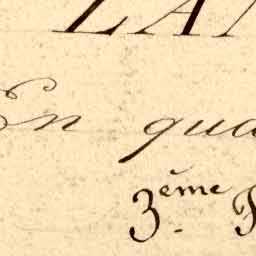 LAN
En qua
3.ème